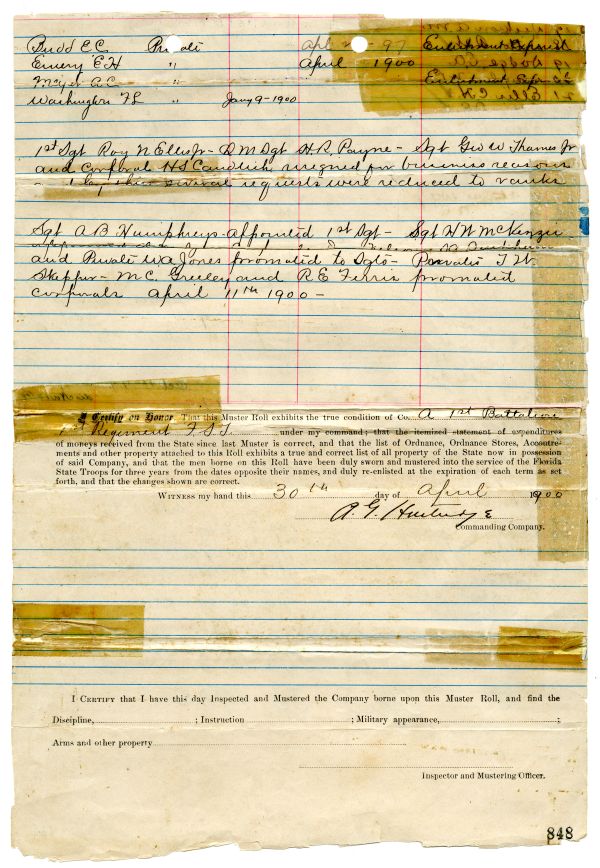 Budd E C Private apl 97 Enlistment Expired
Emery E H " April 1900
Meyer A C "
Washington F L " Jany 9 - 1900
1st Sgt Roy N Ellis Jr - D M Sgt H. R. Payne - Sgt Geo W Thames Jr
and Corporal H S Candlish resigned for business reasons
several requests were reduced to ranks
Sgt A B Humphreys - appointed 1st Sgt - Sgt H W McKenzie
and Private W A Jones promoted to Sgts - Privates T W
Skipper - M C. Greeley and R E Ferris promoted
corporals April 11th 1900 -
I Certify on Honor That this Muster Roll exhibits the true condition of Co. A 1st Battalion
1st Regiment F S T under my command; that the itemized statement of expenditures
of moneys received from the State since last Muster is correct, and that the list of Ordnance, Ordnance Stores, Accoutre-
ments and other property attached to this Roll exhibits a true and correct list of all property of the State now in possession
of said Company, and that the men borne on this Roll have been duly sworn and mustered into the service of the Florida
State Troops for three years from the dates opposite their names, and duly re-enlisted at the expiration of each term as set
forth, and that the changes shown are correct.
WITNESS my hand this 30th day of April 1900
A. G. Hartridge
Commanding Company.
I CERTIFY that I have this day Inspected and Mustered the Company borne upon this Muster Roll, and find the
Discipline, ; Instruction ; Military appearance, ;
Arms and other property
Inspector and Mustering Officer.
848